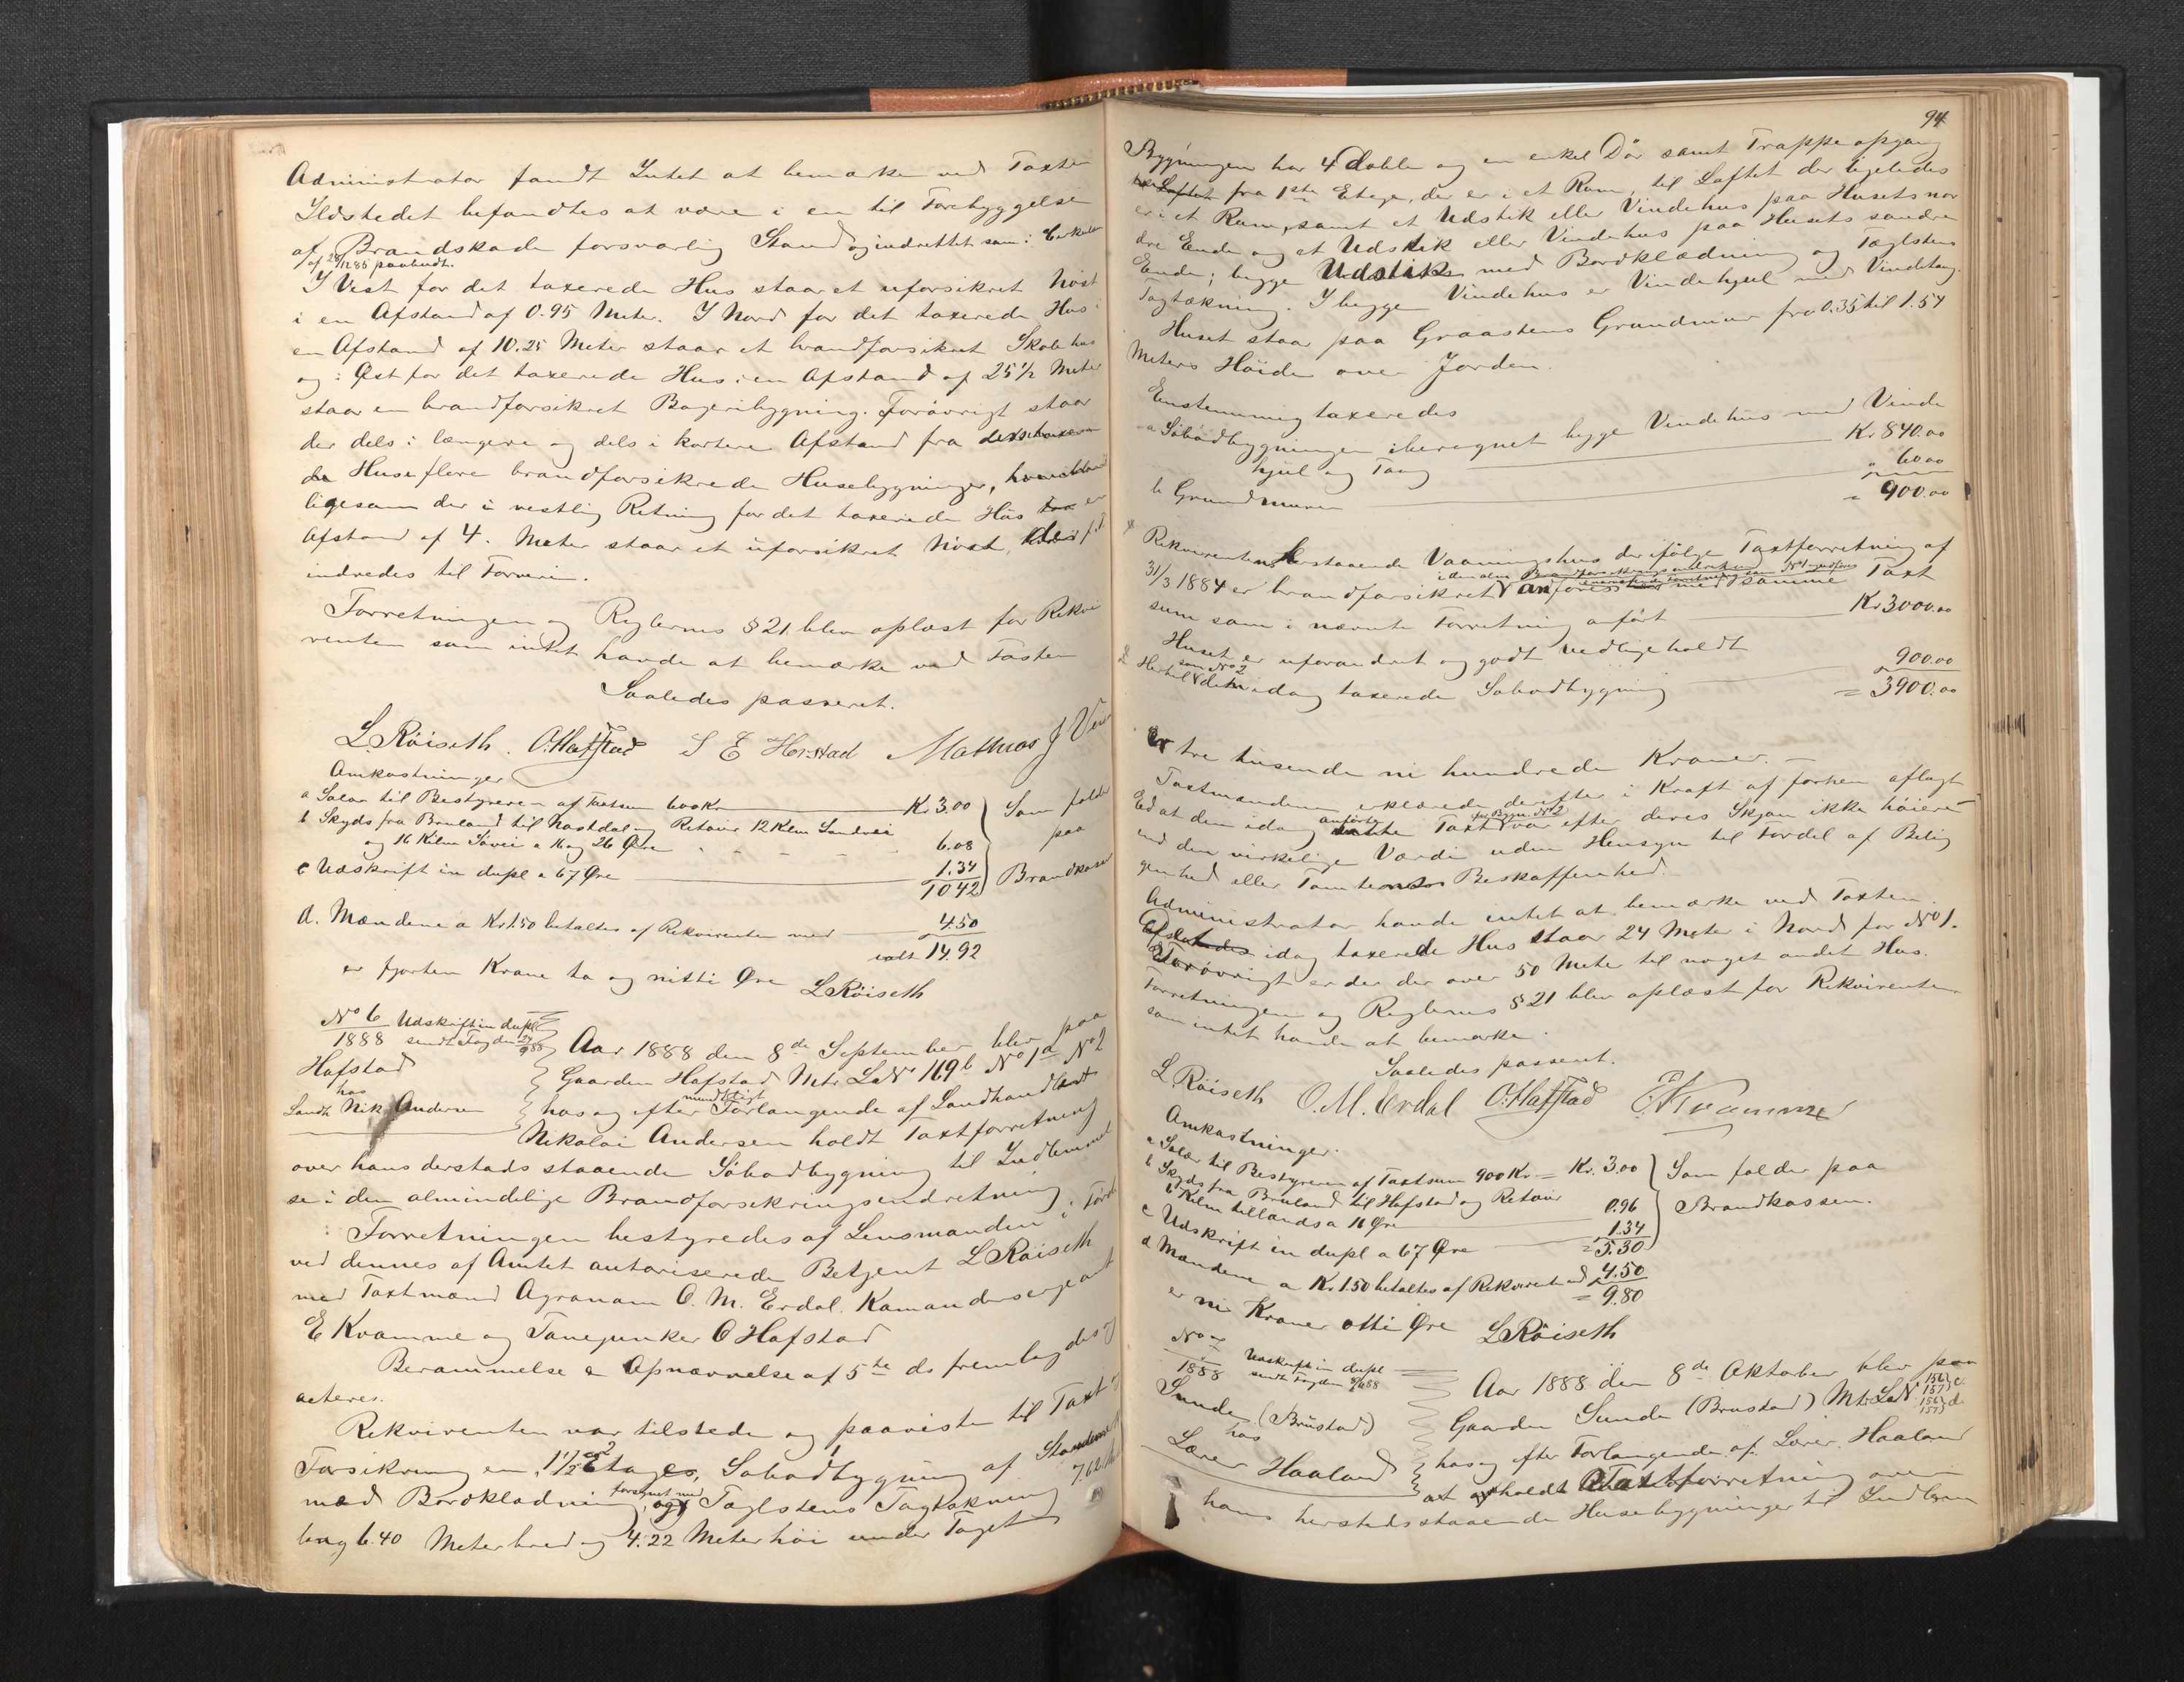 Administrator fandt Intet at bemærke ved Taxten
Ildstedet befandtes at være i en til Forebyggelse
af Brandskade forsvarlig Stand og indrettet som i Cirkulær
af 28/12 85 paabudt.
I Vest for det taxerede Hus staar et uforsikret Nøst
i en Afstand af 0.95 Meter. I Nord for det taxerede Hus i
en Afstand af 10.25 Meter staar et brandforsikret Skolehus
og i Øst for det taxerede Hus i en Afstand af 25 1/2 Meter
staar en brandforsikret Bageribygning. Forøvrigt staar
der dels i længere og dels i kortere Afstand fra det taxere
de Huse flere brandforsikrede Husebygninger,
ligesom der i vestlig Retning for det taxerede Hus en
Afstand af 4. Meter staar et uforsikret Nøst,
indredes til Farveri.
Forretningen og Reglernes § 21 blev oplæst for Rekvi
renten som intet havde at bemærke ved Taxten
Saaledes passeret.
L. Röiseth. O. Hafstad S E Herstad Mathias J
Omkostninger
a Salær til Bestyreren af Taxtsum 600 Kr Kr. 3.00
b Skyds fra Bruland til Nastdal og Retour 12 Kilm Landvei
og 16 Kilm Søvei a 16 og 26 Øre 6.08
c Udskrift in dupl a 67 Øre 1.34
10.42
Som falder
paa
Brandkassen
d. Mændene a Kr 1.50 betaltes af Rekvirenten med 4.50
ialt 14.92
er fjorten Krone to og nitti Øre L Röiseth
No 6
1888
Udskrift in dupl
sendt Fogden 24/9 88
Hafstad
hos
Landh. Nik. Andersen
Aar 1888 den 8de September blev paa
Gaarden Hafstad Mtr. LNo 119 b No 1 a No 2
hos og efter mundtligt Forlangende af Landhandler
Nikolai Andersen holdt Taxtforretning
over hans dersteds staaende Søbodbygning til Indlemmel
se i den almindelige Brandforsikringsindretning.
Forretningen bestyredes af Lensmanden i Førde
ved dennes af Amtet autoriserede Betjent L Röiseth
med Taxtmænd Agronom O. M. Erdal. Komandersergeant
E Kvamme og Fanejunker O Hafstad
Berammelse & Opnævnelse af 5te ds fremlagdes og
acteres.
Rekvirenten var tilstede og paaviste til Taxt og
Forsikring en 1 1/2 Etages, Søbodbygning af
med Bordklædning, forsynet med Taglstens Tagtækning 7.62
lang 6.40 Meter bred og 4.22 Meter høi under Taget
94
Bygningen har 4 doble og en enkel Dør samt Trappeopgang
fra 1ste Etage, der er i et Rum, til Loftet der ligeledes
er i et Rum, samt et Udstik eller Vindehus paa Husets nor
dre Ende og et Udstik eller Vindehus paa Husets søndre
Ende; begge Udstik med Bordklædning og Taglstens
Tagtækning. I begge Vindehus er Vindehjul med Vindetoug.
Huset staar paa Graastens Grundmur fra 0.35 til 1.54
Meters Høide over Jorden.
Enstemmig taxeredes
a Søbodbygningen iberegnet begge Vindehus med Vinde
hjul og Toug Kr 840.00
b Grundmuren " 60.00
= 900.00
Rekvirentens herstaaende Vaaningshus der ifølge Taxtforretning af
31/3 1884 er brandforsikret anføres med samme Taxt
sum som i nævnte Forretning anført Kr 3000.00
Huset er uforandret og godt vedligeholdt
Hertil som No 2 den idag taxerede Søbodbygning 900.00
= 3900.00
er tre tusende ni hundrede Kroner. —
Taxtmændene erklærede derefter i Kraft af forhen aflagt
Ed at den idag anførte Taxt for Bygn. No 2 var efter deres Skjøn ikke høiere
end den virkelige Værdi uden Hensyn til Fordel af Belig
genhed eller Tomtens Beskaffenhed.
Administrator havde intet at bemærke ved Taxten.
idag taxerede Hus staar 24 Meter i Nord for No 1.
Forøvrigt er der der over 50 Meter til noget andet Hus.
Forretningen og Reglernes § 21 blev oplæst for Rekvirenten
som intet havde at bemærke.
Saaledes passeret.
L Röiseth O. M. Erdal O. Hafstad E. Kvamme
Omkostninger.
a Salær til Bestyreren af Taxtsum 900 Kr = Kr. 3.00
b Skyds fra Bruland til Hafstad og Retour
6 Kilm tillands a 16 Øre 0.96
c Udskrift in dupl a 67 Øre 1.34
= 5.30
Som falder paa
Brandkassen.
d Mændene a Kr. 1.50 betaltes af Rekvirent med 4.50
= 9.80
er ni Kroner otti Øre L Röiseth
No 7
1888
Udskrift in dupl
sendt Fogden
Sunde (Brustad)
hos
Lærer Haaland
Aar 1888 den 8de Oktober blev paa
Gaarden Sunde (Brustad) Mtr. LNo 156 157 c. 156 157 d.
hos og efter Forlangende af Lærer Haaland
afholdt Taxtforretning over
hans herstedsstaaende Husebygninger til Indlem